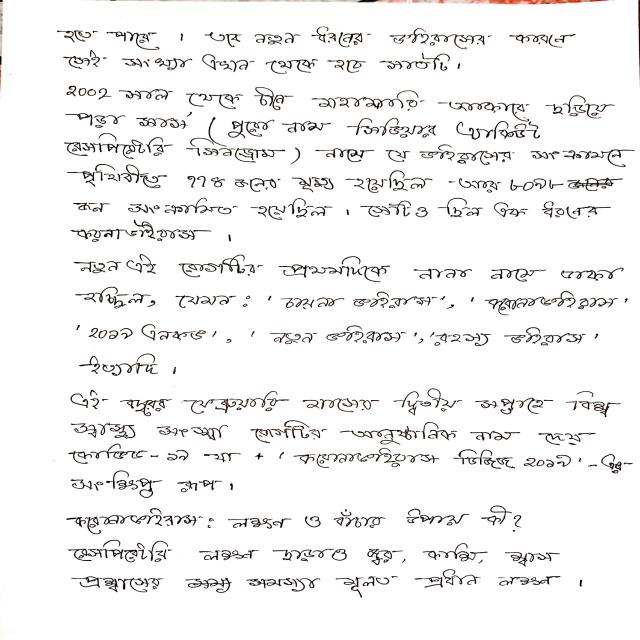 হতে পারে । তবে নতুন ধরনের ভাইরাসের কারনে
সেই সংখ্যা এখন থেকে হবে সাতটি ।
২০০২ সাল থেকে চীনে মহামারি আকারে ছড়িয়ে
পড়া সার্স ( পুরো নাম সিভিয়ার এ্যাকিউট
রেসপিরেটরি সিনড্রোম ) নামে যে ভাইরাসের সংক্রামনে
পৃথিবীতে ৭৭৪ জনের মৃত্যু হয়েছিল আর ৮০৯৮
জন সংক্রামিত হয়েছিল । সেটিও ছিল এক ধরনের
করনাভাইরাস ।
নতুন এই রোগটির প্রথমদিকে নানা নামে ডাকা
হচ্ছিল, যেমন : 'চায়না ভাইরাস', 'করোনাভাইরাস'
'২০১৯ এনকভ', 'নতুন ভাইরাস', 'রহস্য ভাইরাস'
ইত্যাদি ।
এই বছরের ফেব্রুয়ারি মাসের দ্বিতীয় সপ্তাহে বিশ্ব
স্বাস্থ্য সংস্থা রোগটির আনুষ্ঠানিক নাম দেয়
কোভিড-১৯ যা + 'করোনাভাইরাস ডিজিজ ২০১৯'-এর
সংক্ষিপ্ত রূপ ।
করোনাভাইরাস : লক্ষণ ও বাঁচার উপায় কী ?
রেসপিরেটরি লক্ষণ ছাড়াও জ্বর, কাশি, শ্বাস
প্রশ্বাসের সমস্যা মূলত প্রধান লক্ষণ ।